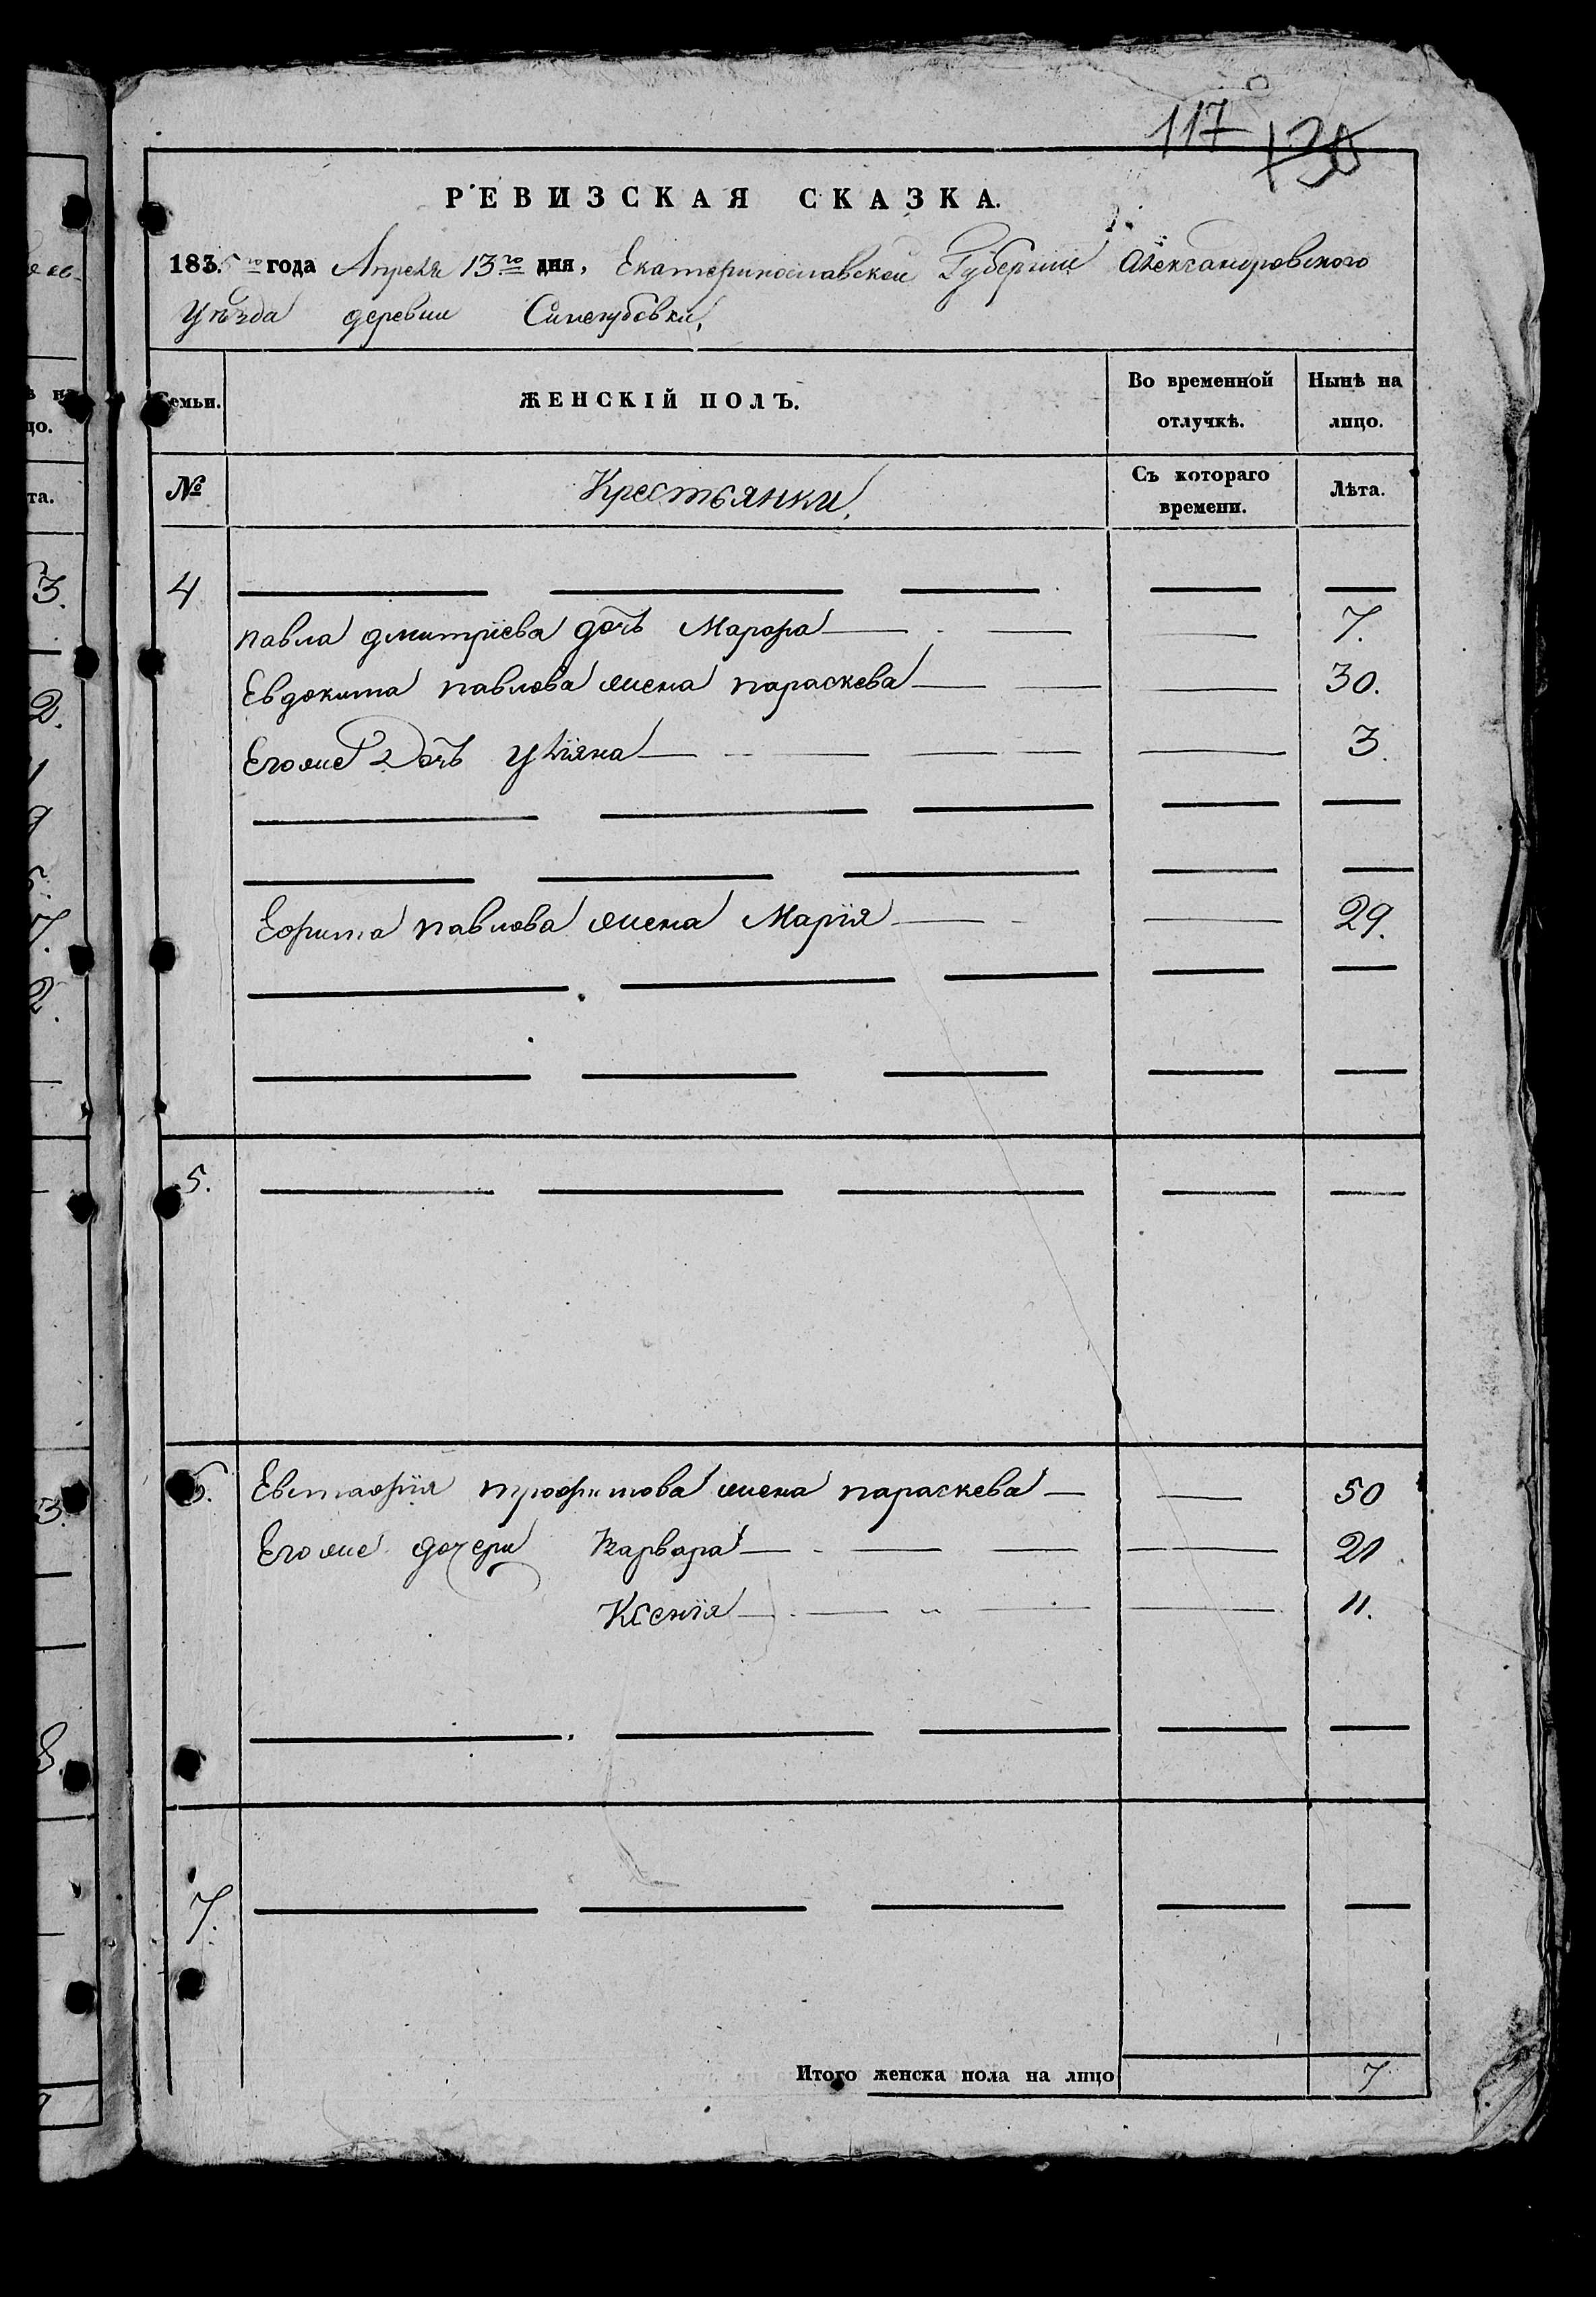 117 120
РЕВИЗСКАЯ СКАЗКА.
1835го года Апреля 13го дня, Екатеринославской Губернии Александровского
Уѣзда деревни
Семьи. ЖЕНСКІЙ ПОЛЪ. Во временной отлучкѣ. Нынѣ на лицо.
№ Крестьянки. Съ котораго времени. Лѣта.
4
павла дмитріева дочь Марфа 7.
Евдокима павлова жена параскева 30.
Егоже Дочь Уліяна 3.
Ефима павлова жена Марія 29.
5.
6. Евстафия трофимова жена параскева 50
Егоже дочери Варвара 21
Ксенія 11.
7.
Итого женска пола на лицо 7